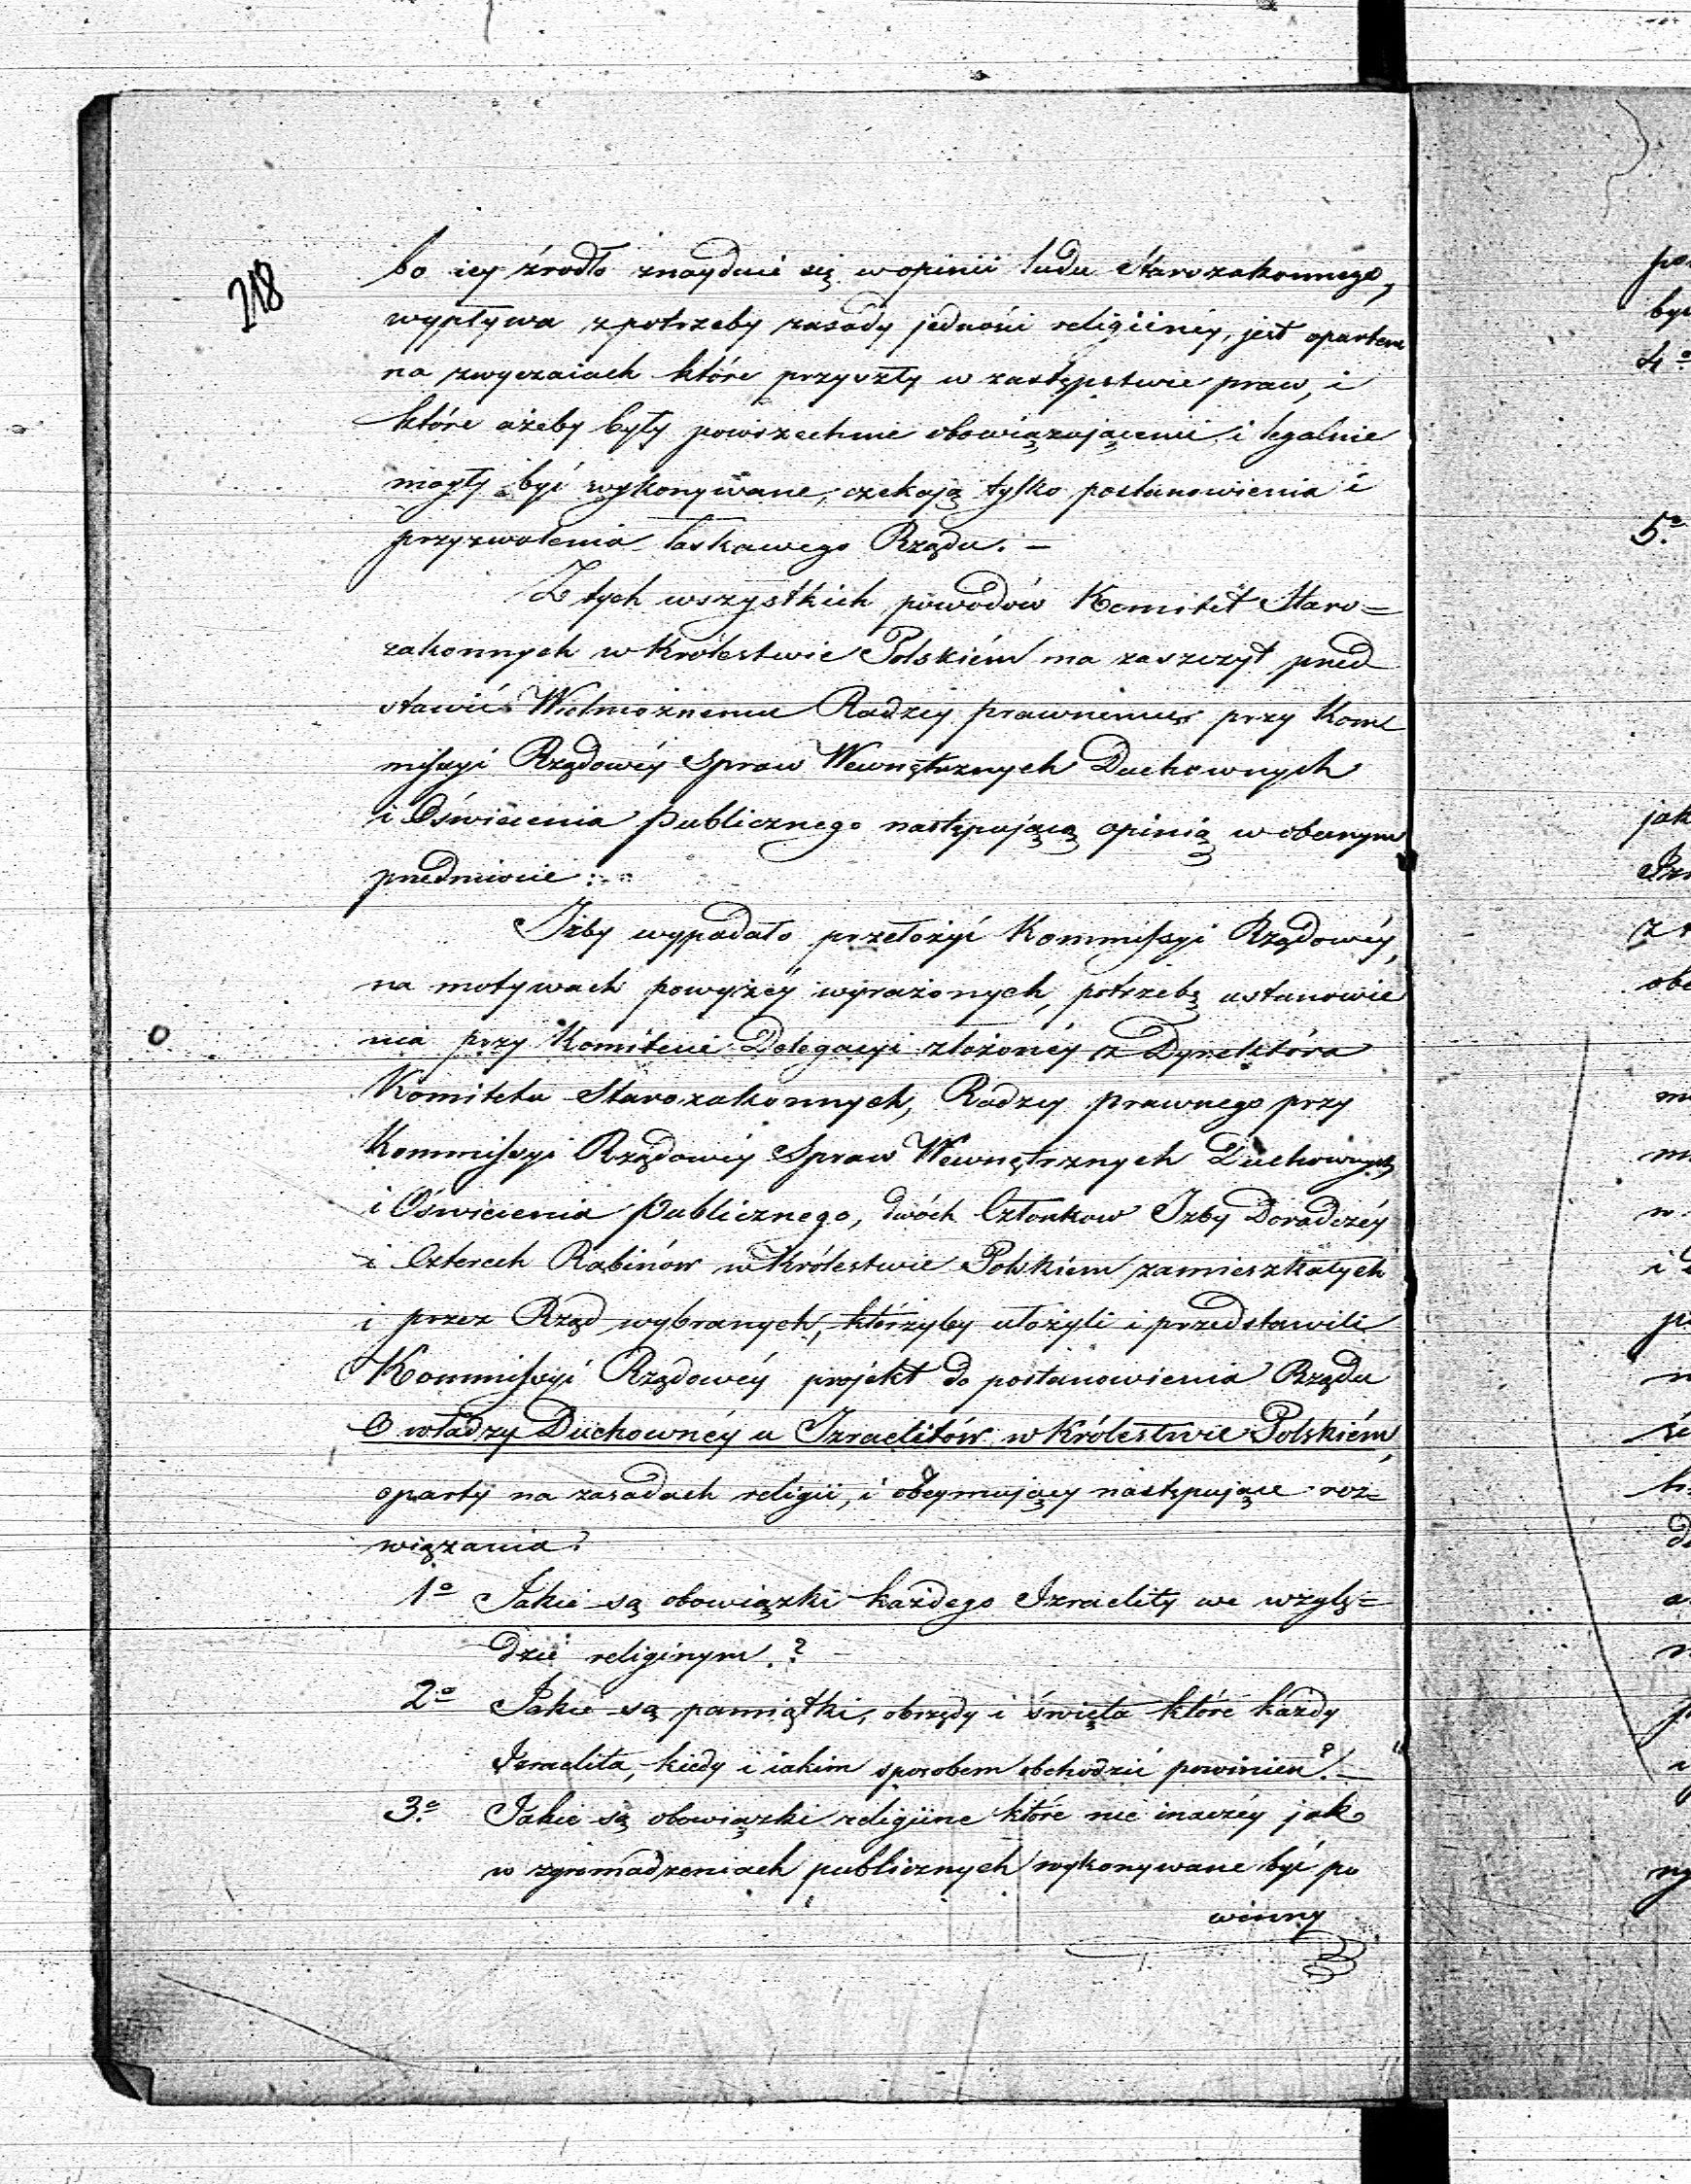 218
bo iey źrodło znayduie się w opinii ludu Starozakonnego,
wypływa z potrzeby zasady jedności religiinéy, jest opartem
na zwyczaiach które przyszły w zastępstwie praw, i
które ażeby były powszechnie obowiązującemi i legalnie
mogły być wykonywane, czekają tylko postanowienia i
przyzwolenia łaskawego Rządu. —
Z tych wszystkich powodów Komitet Staro=
zakonnych w Królestwie Polskiém ma zaszczyt przed
stawić Wielmożnemu Radzcy prawnemu przy Kom
missyi Rządowéy Spraw Wewnętrznych Duchownych
i Oświecenia Publicznego następującą opinią w obecnym
przedmiocie:
Iżby wypadało przełożyć Kommissyi Rządowéy,
na motywach powyżéy wyrażonych, potrzebę ustanowie
nia przy Komitecie Delegacyi złożonéy z Dyrektóra
Komitetu Starozakonnych, Radzcy prawnego przy
Kommissyi Rządowéy Spraw Wewnętrznych Duchownych
i Oświecenia Publicznego, dwóch Członkow Izby Doradczéy
i Czterech Rabinów w Królestwie Polskiem zamieszkałych
i przez Rząd wybranych, którzyby ułożyli i przedstawili
Kommissyi Rządowéy projekt do postanowienia Rządu
O władzy Duchownéy u Izraelitów w Królestwie Polskiém,
oparty na zasadach religii, i obeymujący następujące roz=
wiązania:
1o Jakie są obowiązki każdego Izraelity we wzglę=
dzie religinym.?
2o Jakie są pamiątki, obrzędy i święta które każdy
Izraelita, kiedy i iakim sposobem obchodzić powinien? —
3o Jakie są obowiązki religiine które nie inaczéy jak
w zgromadzeniach publicznych wykonywane być po
winny
4o
5o
jak